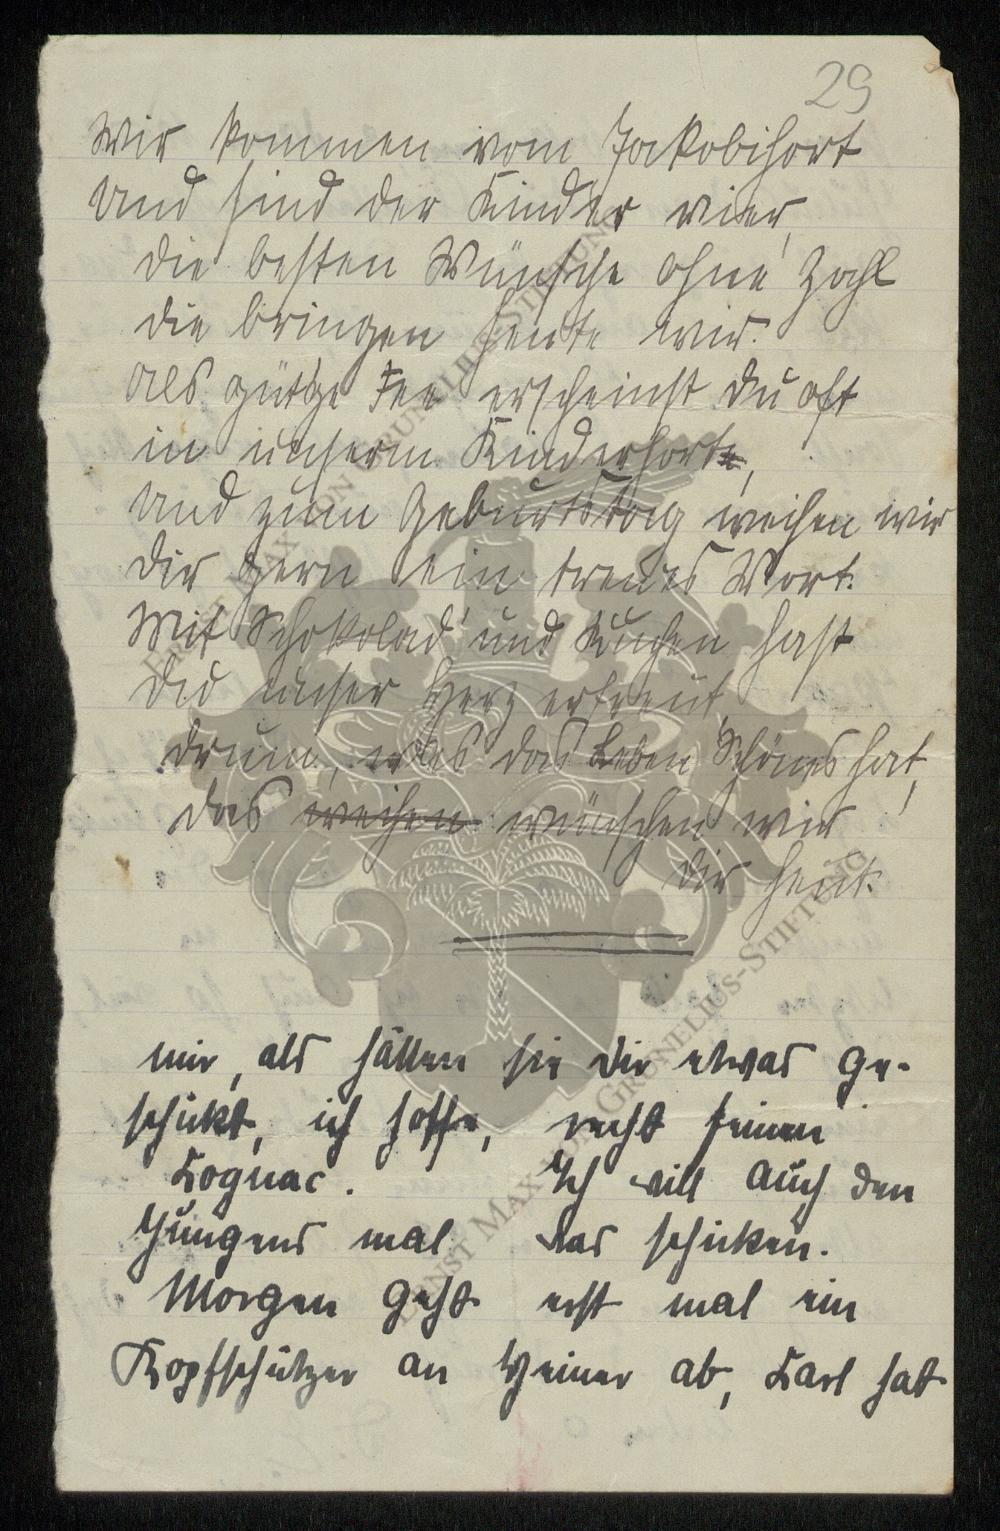 29
Wir kommen vom Jakobihort
Und sind der Kinder vier,
die besten Wünsche ohne Zahl
die bringen heute wir.
Als güt'ge Fee erscheinst Du oft
in unserm Kinderhort,
Und zum Geburtstag weihen wir
Dir gern ein treues Wort.
Mit Schokolad' und Kuchen hast
Du unser Herz erfreut,
drum, was das Leben Schönes hat,
das weihen wünschen wir
Dir heut.
mir, als hätten sie Dir etwas ge-
schickt, ich hoffe, recht feinen
Cognac. Ich will auch den
Jungens mal was schicken.
Morgen geht erst mal ein
Kopfschützer an Heiner ab, Karl hat
ERNST MAX VON GRUNELIUS-STIFTUNG
ERNST MAX VON GRUNELIUS-STIFTUNG